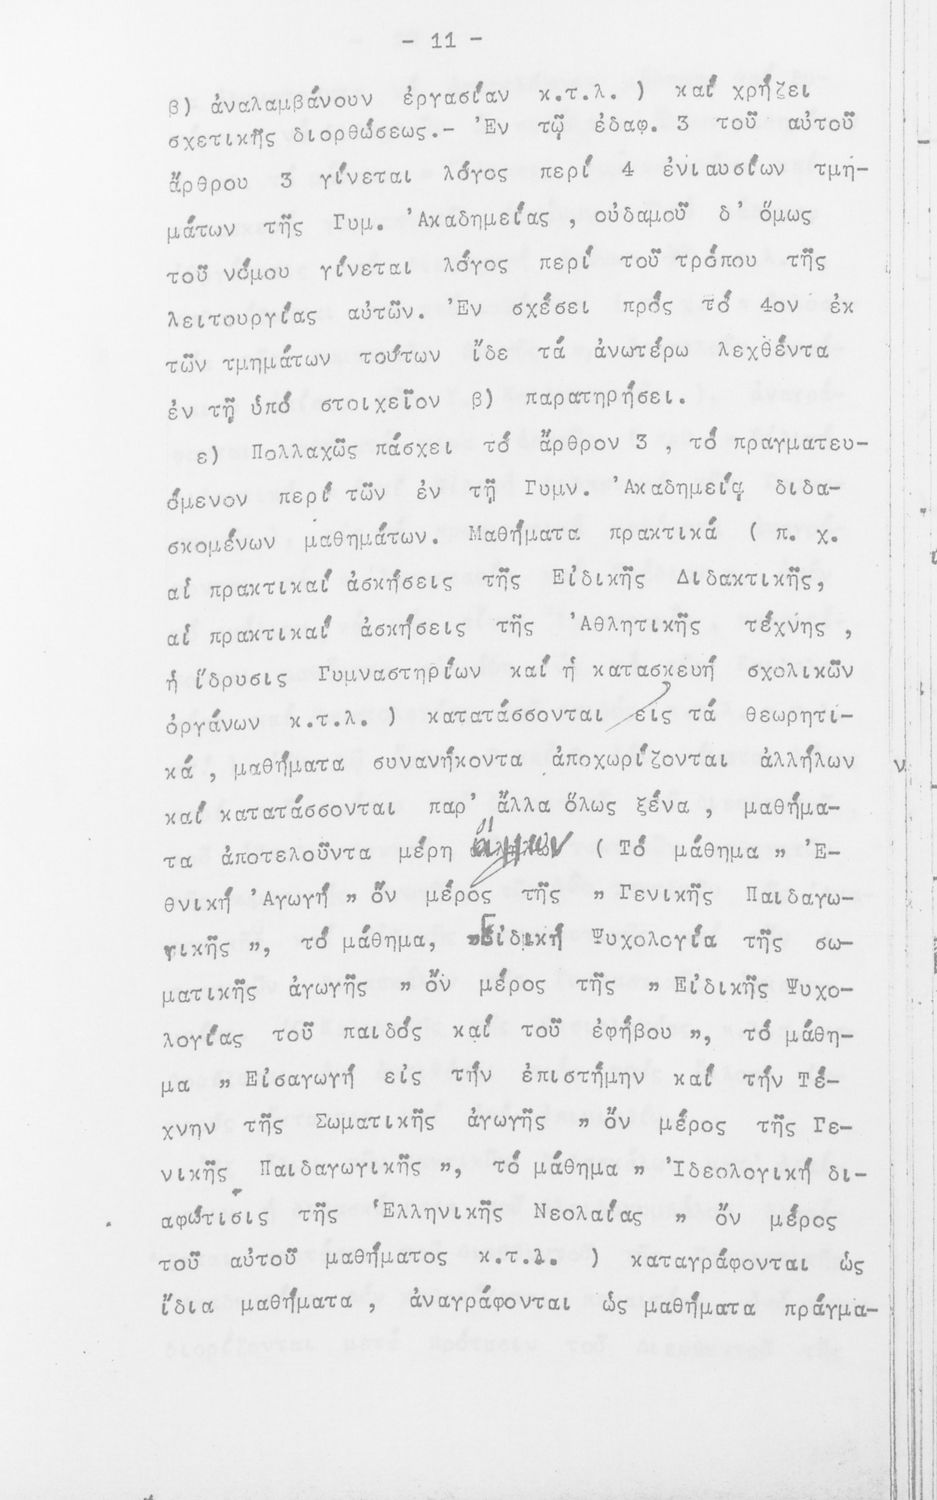 - 11 -
β) ἀναλαμβάνουν ἐργασίαν κ.τ.λ. ) καί χρήζει
σχετικῆς διορθώσεως.- Ἐν τῷ ἐδαφ. 3 τοῦ αὐτοῦ
ἄρθρου 3 γίνεται λόγος περί 4 ἐνιαυσίων τμη-
μάτων τῆς Γυμ. Ἀκαδημείας , οὐδαμοῦ δ' ὅμως
τοῦ νόμου γίνεται λόγος περί τοῦ τρόπου τῆς
λειτουργίας αὐτῶν. Ἐν σχέσει πρός τό 4ον ἐκ
τῶν τμημάτων τούτων ἴδε τά ἀνωτέρω λεχθέντα
ἐν τῇ ὑπό στοιχεῖον β) παρατηρήσει.
ε) Πολλαχῶς πάσχει τό ἄρθρον 3 , τό πραγματευ-
όμενον περί τῶν ἐν τῇ Γυμν. Ἀκαδημείᾳ διδα-
σκομένων μαθημάτων. Μαθήματα πρακτικά ( π. χ.
αἱ πρακτικαί ἀσκήσεις τῆς Εἰδικῆς Διδακτικῆς,
αἱ πρακτικαί ἀσκήσεις τῆς Ἀθλητικῆς τέχνης ,
ἡ ἵδρυσις Γυμναστηρίων καί ἡ κατασκευή σχολικῶν
ὀργάνων κ.τ.λ. ) κατατάσσονται εἰς τά θεωρητι-
κά , μαθήματα συνανήκοντα ἀποχωρίζονται ἀλλήλων
καί κατατάσσονται παρ' ἄλλα ὅλως ξένα , μαθήμα-
τα ἀποτελοῦντα μέρη ἄλλων ( Τό μάθημα „ Ἐ-
θνική Ἀγωγή „ ὄν μέρος τῆς „ Γενικῆς Παιδαγω-
γικῆς „, τό μάθημα, „Εἰδική Ψυχολογία τῆς σω-
ματικῆς ἀγωγῆς „ ὄν μέρος τῆς „ Εἰδικῆς Ψυχο-
λογίας τοῦ παιδός καί τοῦ ἐφήβου „, τό μάθη-
μα „ Εἰσαγωγή εἰς τήν ἐπιστήμην καί τήν Τέ-
χνην τῆς Σωματικῆς ἀγωγῆς „ ὄν μέρος τῆς Γε-
νικῆς Παιδαγωγικῆς „, τό μάθημα „ Ἰδεολογική δι-
αφώτισις τῆς Ἑλληνικῆς Νεολαίας „ ὄν μέρος
τοῦ αὐτοῦ μαθήματος κ.τ.λ. ) καταγράφονται ὡς
ἴδια μαθήματα , ἀναγράφονται ὡς μαθήματα πράγμα-